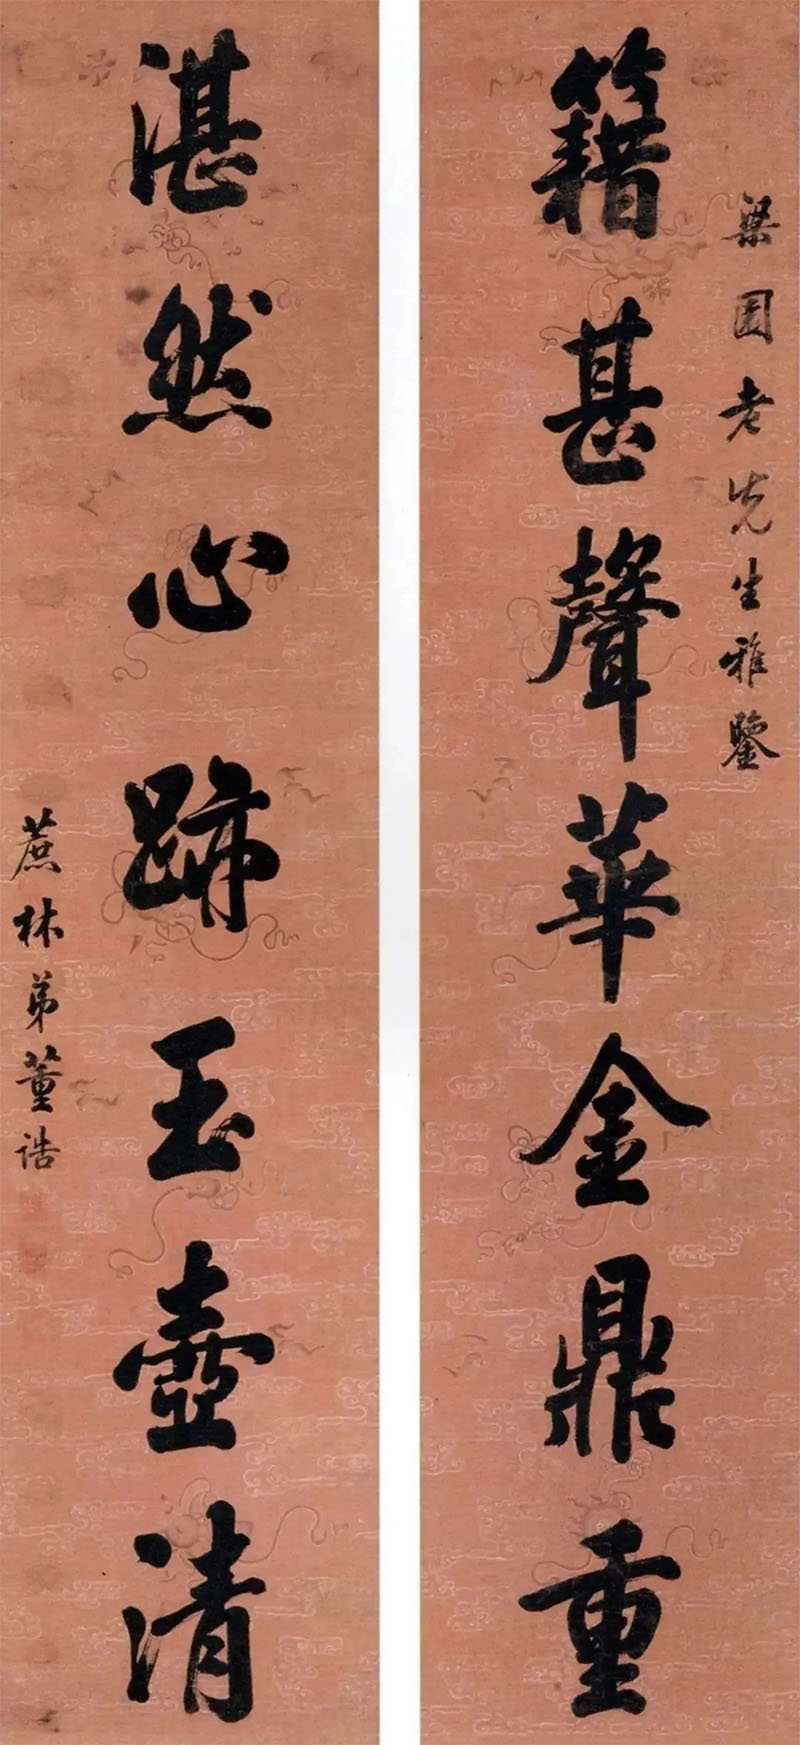 梁園老先生雅鑒
籍甚聲華金鼎重
湛然心跡玉壺清
蔗林弟董誥